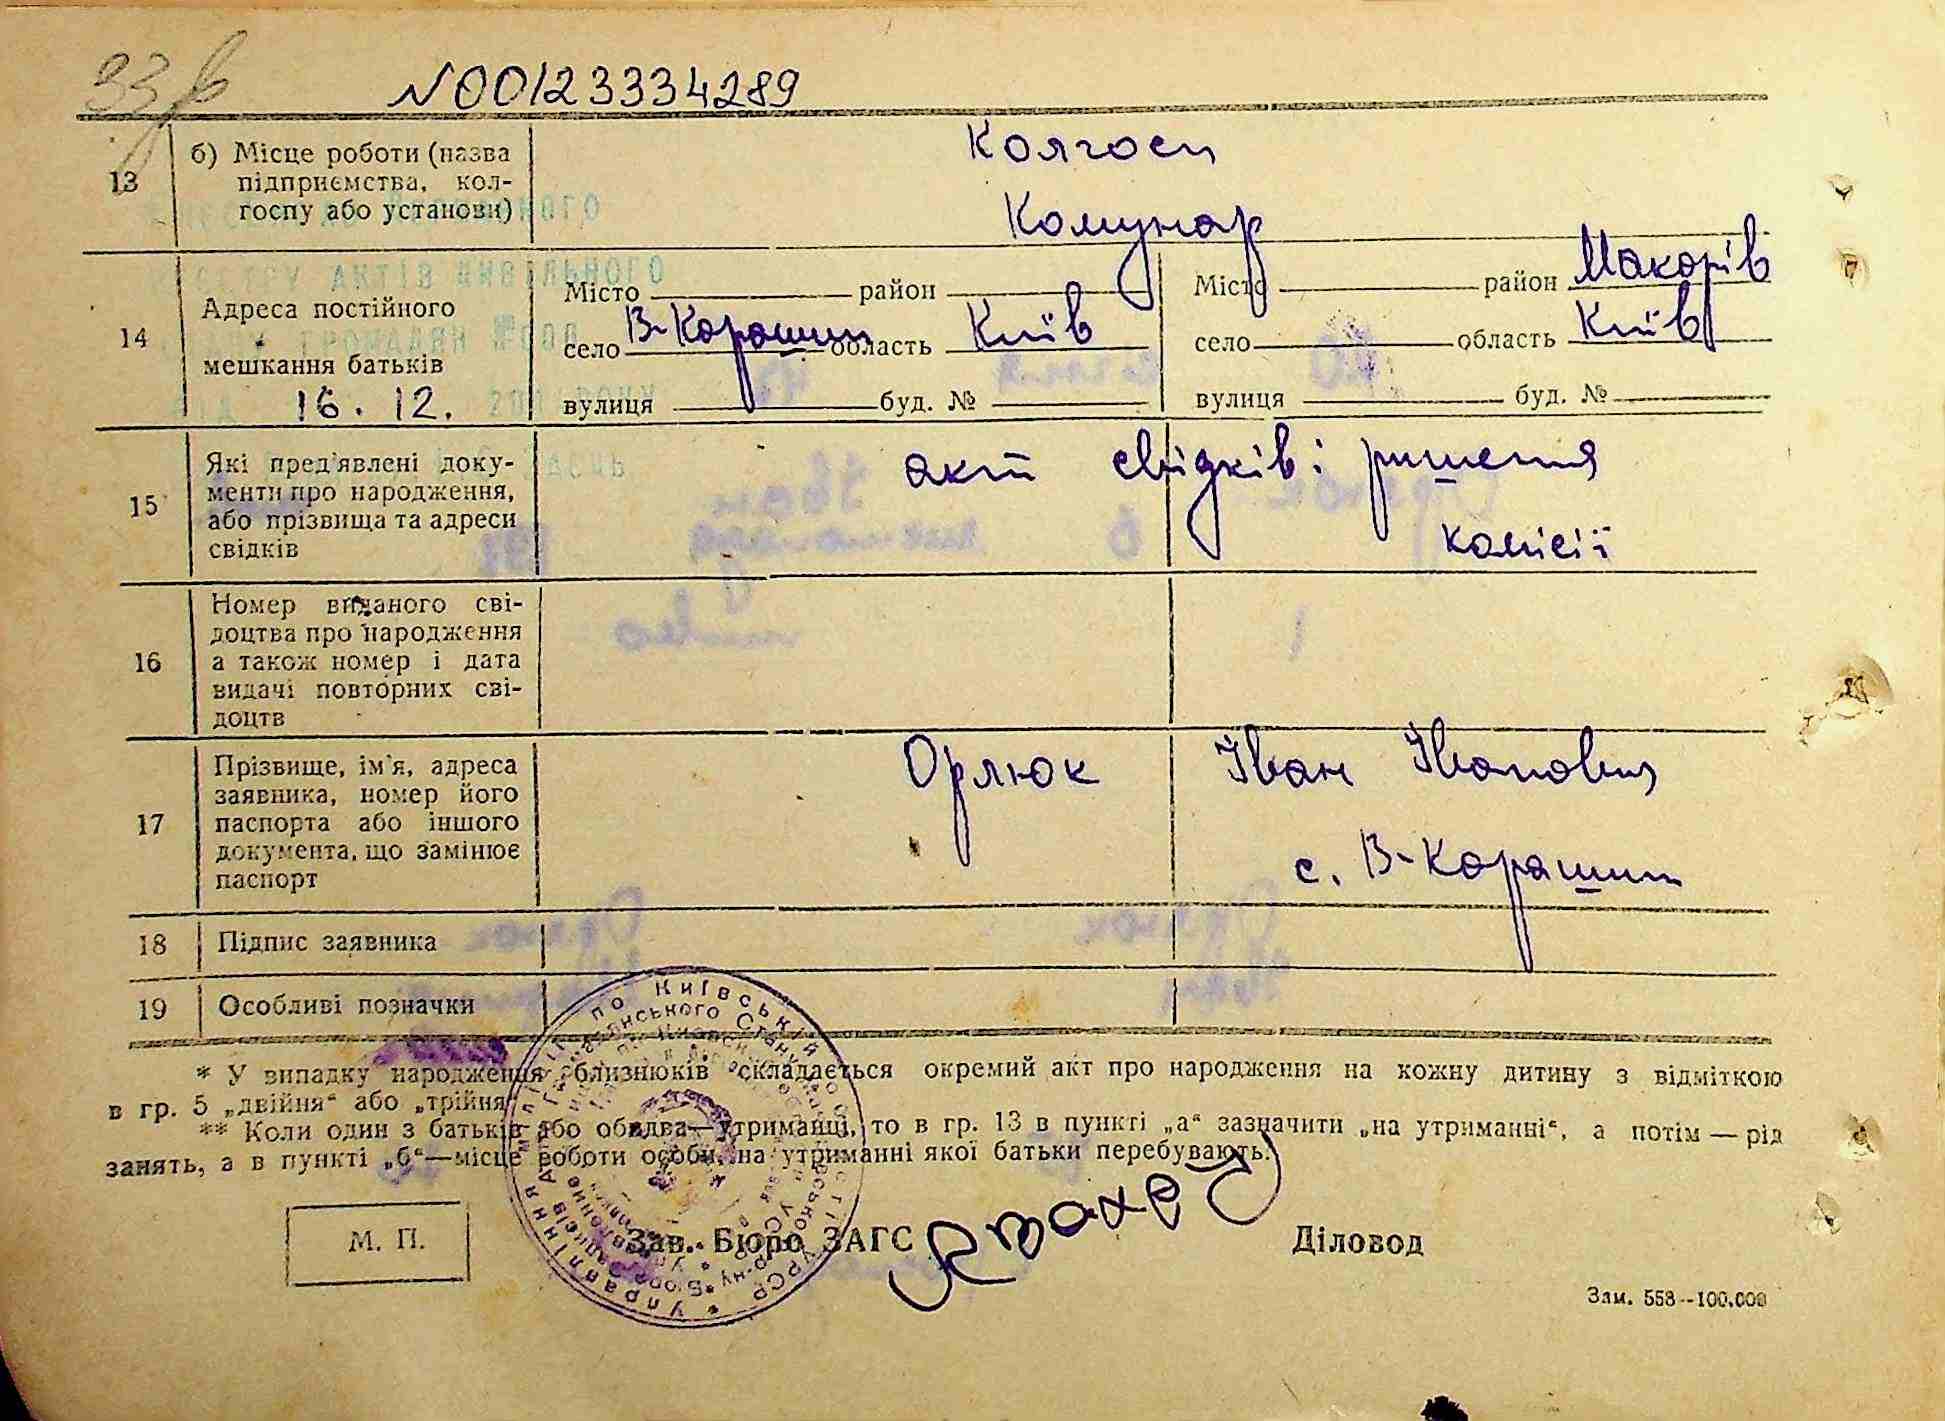 N00123334289
13
б) Місце роботи (назва
підприємства, кол-
госпу або установи)
Колгосп
Комунар
14
Адреса постійного
мешкання батьків
16. 12.
Місто район
село В-Карашин область Київ
вулиця буд. №
Місто район Макарів
село область Київ
вулиця буд. №
15
Які пред'явлені доку-
менти про народження,
або прізвища та адреси
свідків
акт свідків і ришення
комісії
16
Номер виданого сві-
доцтва про народження
а також номер і дата
видачі повторних сві-
доцтв
17
Прізвище, ім'я, адреса
заявника, номер його
паспорта або іншого
документа, що замінює
паспорт
Орлюк Іван Іванович
с. В-Карашин
18
Підпис заявника
19
Особливі позначки
* У випадку народження близнюків складається окремий акт про народження на кожну дитину з відміткою
в гр. 5 „двійня“ або „трійня“
** Коли один з батьків або обидва—утриманці, то в гр. 13 в пункті „а“ зазначити „на утриманні“, а потім — рід
занять, а в пункті „б“—місце роботи особи, на утриманні якої батьки перебувають.
М. П.
Зав. Бюро ЗАГС
Діловод
Зам. 558--100.000